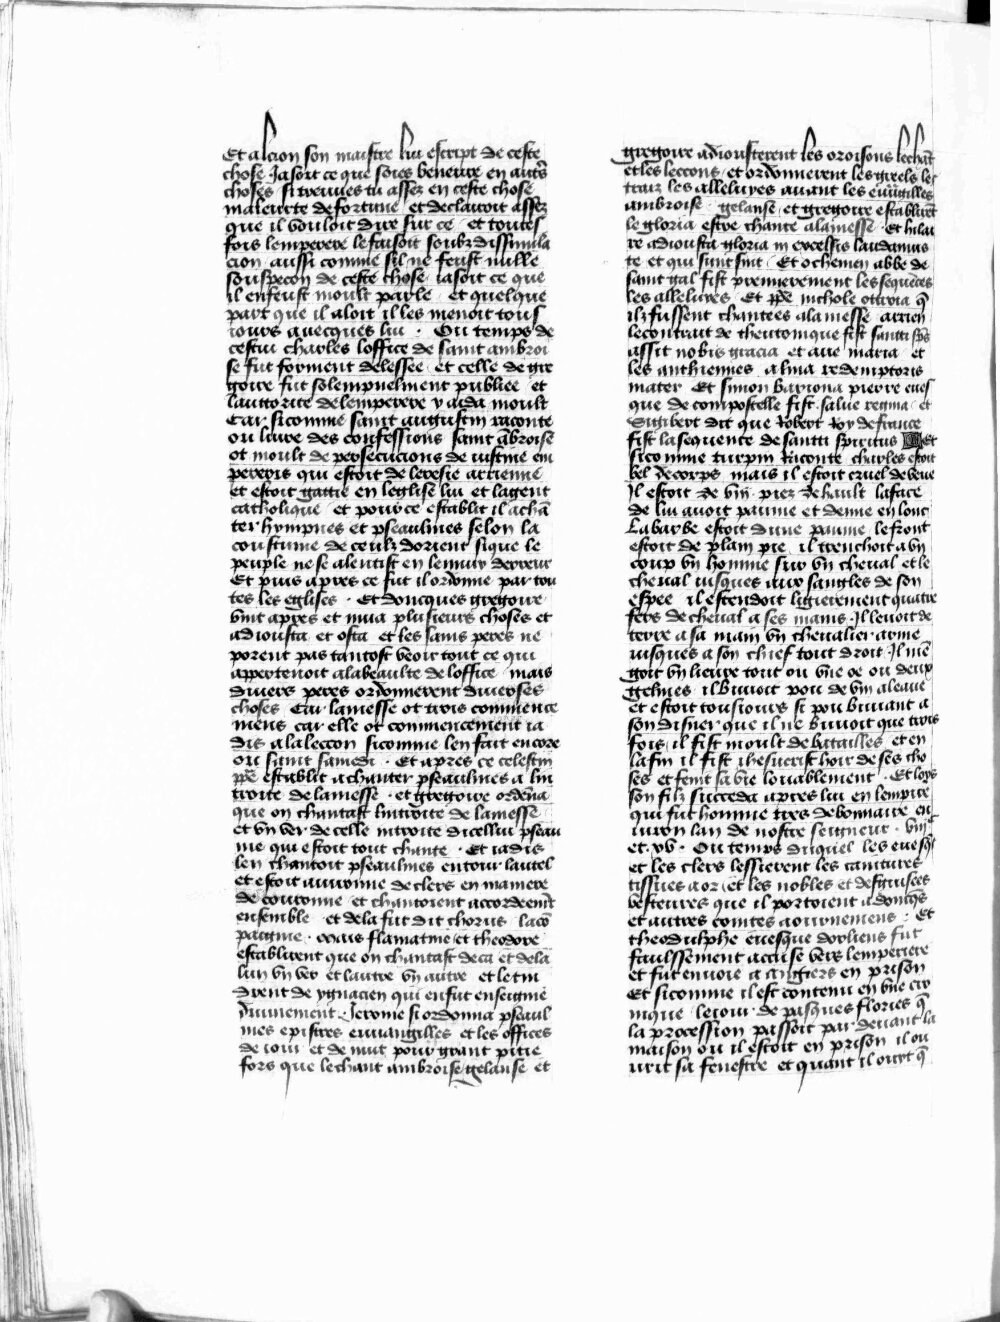 Et alcion son maistre lui escript de ceste
chose Jasoit ce que soies beneure en autres
choses si treuues tu assez en ceste chose
maleurte de fortune et declairoit assez
que il vouloit dire sur ce et toutes
fois lempereur le faisoit soubz dissimula
cion aussi comme sil ne feust nulle
souspecon de ceste chose iasoit ce que
il en feust moult parle et quelque
part que il aloit il les menoit tous
iours auecques lui . Ou temps de
cestui charles loffice de saint ambroi
se fut forment delessee et celle de gre
goire fut solempnelment publiee et
lauttorite de lempereur y aida moult
Car sicomme saint augustin raconte
ou liure des confessions saint ābroise
ot moult de persecucions de iustine em
pereris qui estoit de leresie arrienne
et estoit gaittie en leglise lui et lagent
catholique et pource establit il achā
ter hympnes et pseaulmes selon la
coustume de ceulz dorient sique le
peuple ne se alentist en lennuy derreur
Et puis apres ce fut il ordonne par tou
tes les eglises . Et doncques gregoire
vint apres et mua plusieurs choses et
adiousta et osta et les sains peres ne
porent pas tantost veoir tout ce qui
appertenoit a la beaulte de loffice mais
diuers peres ordonnerent diuerses
choses Car la messe ot trois commence
mens car elle ot commencement ia
dis a la leccon sicomme len fait encore
ou saint samedi . Et apres ce celestin
ppē establit a chanter pseaulmes a lin
troite de la messe . et gregoire ordēna
que on chantast lintroite de la messe
et vn ver de celle introite dicellui pseau
me qui estoit tout chante . Et iadis
len chantoit pseaulmes entour lautel
et estoit auironne de clers en maniere
de couronne et chantoient accordeemēt
ensemble et de la fut dit chorus lacō
paignie . Mais flamatine et theodore
establirent que on chantast deca et dela
lun vn ver et lautre vn autre et le tin
drent de ygnacien qui en fut enseignie
diuinement . Jerome si ordonna pseaul
mes epistres euuangilles et les offices
de iour et de nuit pour grant pitie
fors que le chant ambroise gelaise et
gregoire adiousterent les oroisons le chāt
et les leccons et ordonnerent les greels les
traiz les alleluyes auant les euuāgilles
ambroise gelaise et gregoire establirēt
le gloria estre chante a la messe Et hilai
re adiousta gloria in excelsis laudamus
te et qui suit suit Et ochemen abbe de
saint gal fist premierement les sequēces
les alleluyes Et ppē nichole ottria q̄
ilz fussent chantees a la messe arrien
le contrait de theutonique fist santti sp̄s
assit nobis gracia et aue maria et
les anthiennes alma redemptoris
mater Et simon bariona pierre eues
que de compostelle fist salue regina et
Sigibert dit que Robert Roy de france
fist la sequence de santti spiritus Et
sicomme turpin Raconte charles estoit
bel de corps mais il estoit cruel de veue
Il estoit de viij piez de hault la face
de lui auoit paume et demie en lonc
La barbe estoit dune paume le front
estoit de plain pie il trenchoit a vn
coup vn homme sur vn cheual et le
cheual iusques aux sangles de son
espee il estendoit ligierement quatre
fers de cheual a ses mains . Il leuoit de
terre a sa main vn cheualier arme
iusques a son chief tout droit Il mē
goit vn lieure tout ou vne oe ou deux
gelines il buuoit pou de vin a leaue
et estoit tousiours si pou buuant a
son disner que il ne buuoit que trois
fois il fist moult de batailles et en
la fin il fist ihesucrist hoir de ses cho
ses et fenit sa vie louablement . Et loys
son filz succeda apres lui en lempire
qui fut homme tres debonnaire en
iuron lan de nostre seigneur . viijc
et . xv . Ou temps duquel les euesqs
et les clers lessierent les cainturs
tissues a or et les nobles et desguisees
vesteures que il portoient adoncqs
et autres cointes aournemens . Et
theodulphe euesque dorliens fut
faulssement accuse vers lemperiere
et fut enuoie a angiers en prison
Et sicomme il est contenu en vne cro
nique le iour de pasques flories q̄
la procession passoit par deuant la
maison ou il estoit en prison il ou
urit sa fenestre et quant il ouyt q̄